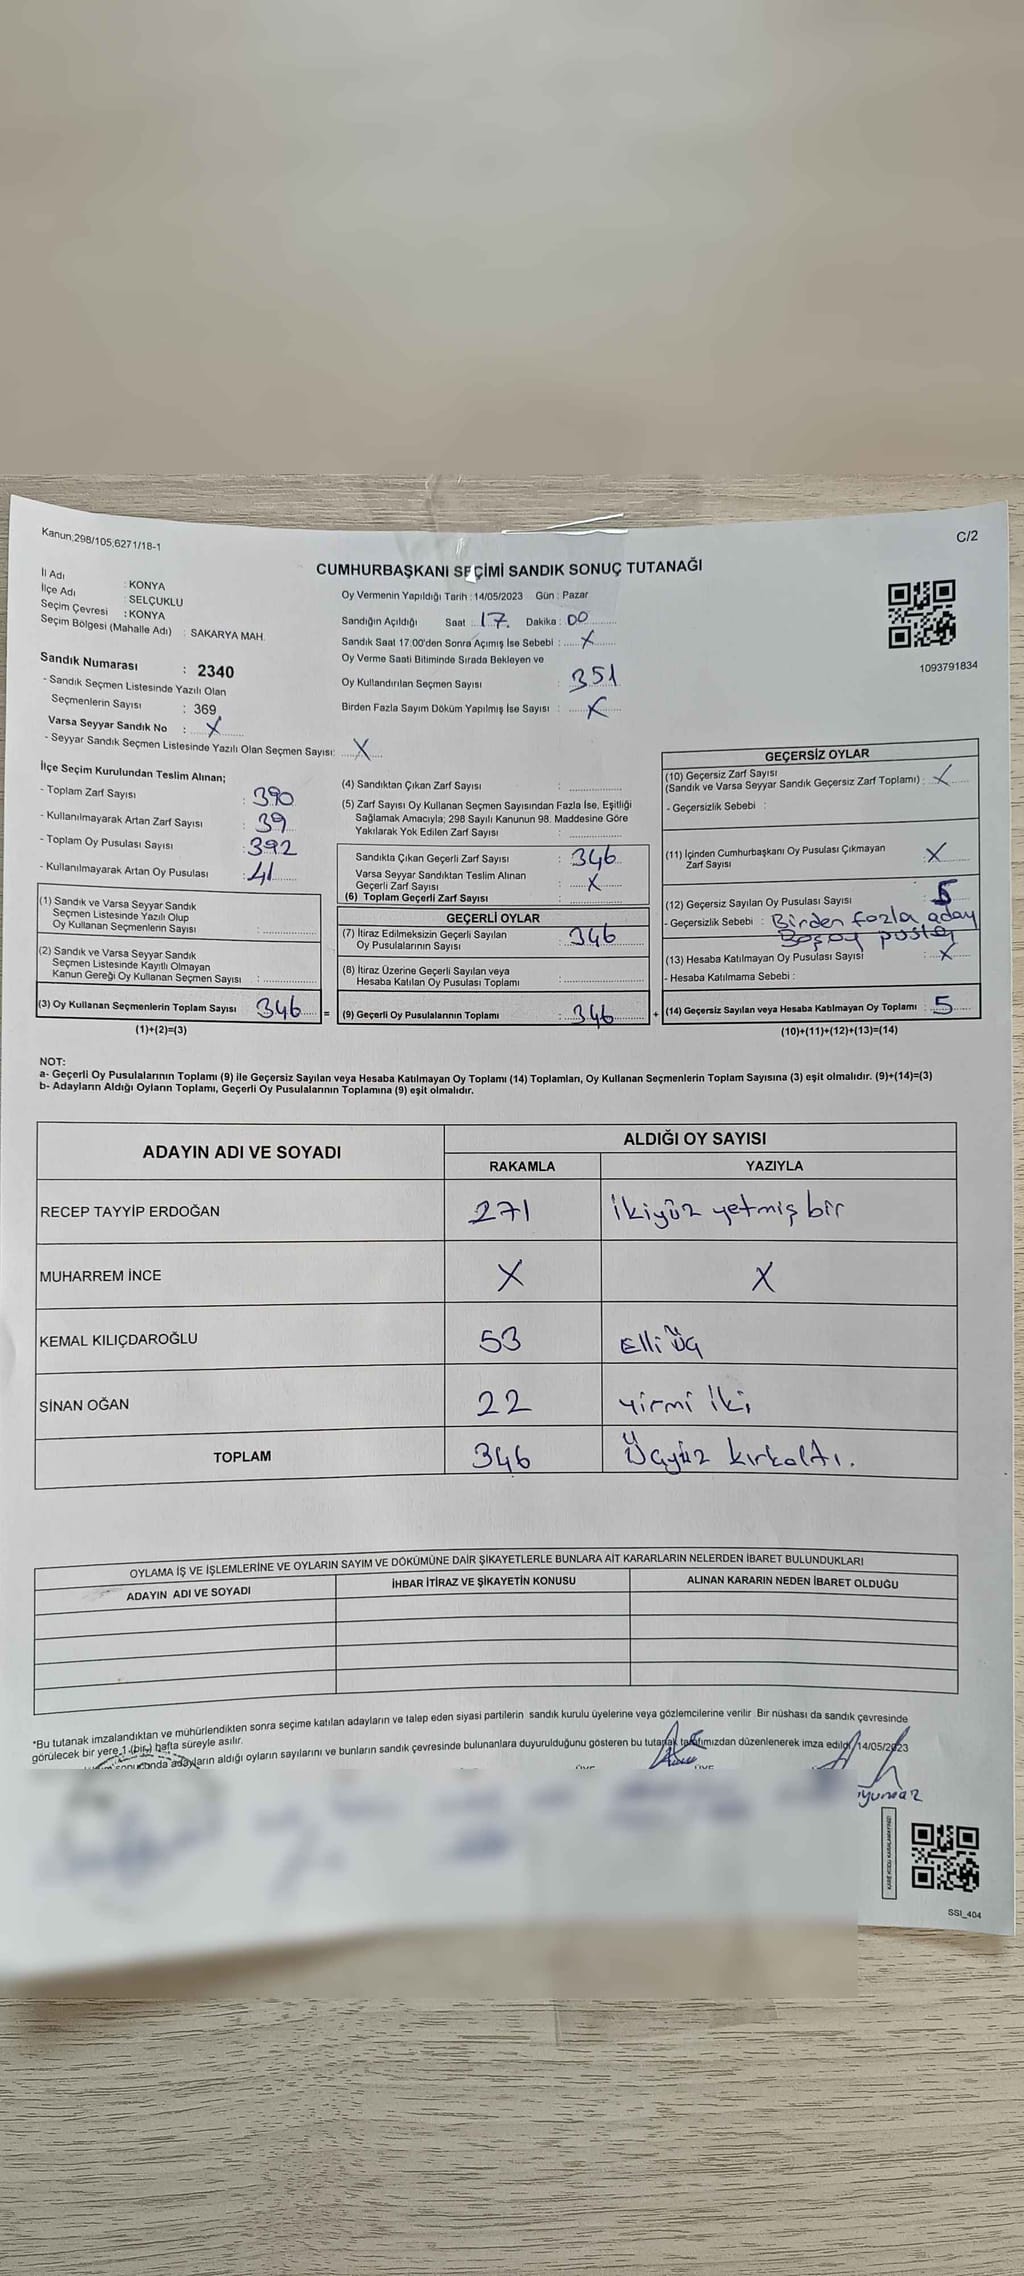 Kanun;298/105,6271/18-1
C/2
CUMHURBAŞKANI SEÇİMİ SANDIK SONUÇ TUTANAĞI
İl Adı : KONYA
İlçe Adı : SELÇUKLU
Seçim Çevresi : KONYA
Seçim Bölgesi (Mahalle Adı) : SAKARYA MAH.
Sandık Numarası : 2340
- Sandık Seçmen Listesinde Yazılı Olan
Seçmenlerin Sayısı : 369
Varsa Seyyar Sandık No : X
- Seyyar Sandık Seçmen Listesinde Yazılı Olan Seçmen Sayısı: X
Oy Vermenin Yapıldığı Tarih : 14/05/2023 Gün : Pazar
Sandığın Açıldığı Saat : 17. Dakika : 00
Sandık Saat 17.00'den Sonra Açımış İse Sebebi : X
Oy Verme Saati Bitiminde Sırada Bekleyen ve
Oy Kullandırılan Seçmen Sayısı : 351
Birden Fazla Sayım Döküm Yapılmış İse Sayısı : X
1093791834
İlçe Seçim Kurulundan Teslim Alınan;
- Toplam Zarf Sayısı : 390
- Kullanılmayarak Artan Zarf Sayısı : 39
- Toplam Oy Pusulası Sayısı : 392
- Kullanılmayarak Artan Oy Pusulası : 41
(1) Sandık ve Varsa Seyyar Sandık
Seçmen Listesinde Yazılı Olup
Oy Kullanan Seçmenlerin Sayısı :
(2) Sandık ve Varsa Seyyar Sandık
Seçmen Listesinde Kayıtlı Olmayan
Kanun Gereği Oy Kullanan Seçmen Sayısı :
(3) Oy Kullanan Seçmenlerin Toplam Sayısı 346 =
(1)+(2)=(3)
(4) Sandıktan Çıkan Zarf Sayısı :
(5) Zarf Sayısı Oy Kullanan Seçmen Sayısından Fazla İse, Eşitliği
Sağlamak Amacıyla; 298 Sayılı Kanunun 98. Maddesine Göre
Yakılarak Yok Edilen Zarf Sayısı :
Sandıkta Çıkan Geçerli Zarf Sayısı : 346
Varsa Seyyar Sandıktan Teslim Alınan
Geçerli Zarf Sayısı : X
(6) Toplam Geçerli Zarf Sayısı :
GEÇERLİ OYLAR
(7) İtiraz Edilmeksizin Geçerli Sayılan
Oy Pusulalarının Sayısı : 346
(8) İtiraz Üzerine Geçerli Sayılan veya
Hesaba Katılan Oy Pusulası Toplamı :
(9) Geçerli Oy Pusulalarının Toplamı : 346 +
GEÇERSİZ OYLAR
(10) Geçersiz Zarf Sayısı
(Sandık ve Varsa Seyyar Sandık Geçersiz Zarf Toplamı) : X
- Geçersizlik Sebebi :
(11) İçinden Cumhurbaşkanı Oy Pusulası Çıkmayan
Zarf Sayısı : X
(12) Geçersiz Sayılan Oy Pusulası Sayısı : 5
- Geçersizlik Sebebi : Birden fazla aday
(13) Hesaba Katılmayan Oy Pusulası Sayısı : X
- Hesaba Katılmama Sebebi :
(14) Geçersiz Sayılan veya Hesaba Katılmayan Oy Toplamı : 5
(10)+(11)+(12)+(13)=(14)
NOT:
a- Geçerli Oy Pusulalarının Toplamı (9) ile Geçersiz Sayılan veya Hesaba Katılmayan Oy Toplamı (14) Toplamları, Oy Kullanan Seçmenlerin Toplam Sayısına (3) eşit olmalıdır. (9)+(14)=(3)
b- Adayların Aldığı Oyların Toplamı, Geçerli Oy Pusulalarının Toplamına (9) eşit olmalıdır.
ADAYIN ADI VE SOYADI ALDIĞI OY SAYISI
RAKAMLA YAZIYLA
RECEP TAYYİP ERDOĞAN 271 ikiyüz yetmiş bir
MUHARREM İNCE X X
KEMAL KILIÇDAROĞLU 53 Elli üç
SİNAN OĞAN 22 yirmi iki
TOPLAM 346 Üçyüz kırkaltı.
OYLAMA İŞ VE İŞLEMLERİNE VE OYLARIN SAYIM VE DÖKÜMÜNE DAİR ŞİKAYETLERLE BUNLARA AİT KARARLARIN NELERDEN İBARET BULUNDUKLARI
ADAYIN ADI VE SOYADI İHBAR İTİRAZ VE ŞİKAYETİN KONUSU ALINAN KARARIN NEDEN İBARET OLDUĞU
*Bu tutanak imzalandıktan ve mühürlendikten sonra seçime katılan adayların ve talep eden siyasi partilerin sandık kurulu üyelerine veya gözlemcilerine verilir. Bir nüshası da sandık çevresinde
görülecek bir yere 1 (bir) hafta süreyle asılır.
sonucunda adayların aldığı oyların sayılarını ve bunların sandık çevresinde bulunanlara duyurulduğunu gösteren bu tutanak tarafımızdan düzenlenerek imza edildi. 14/05/2023
SSI_404